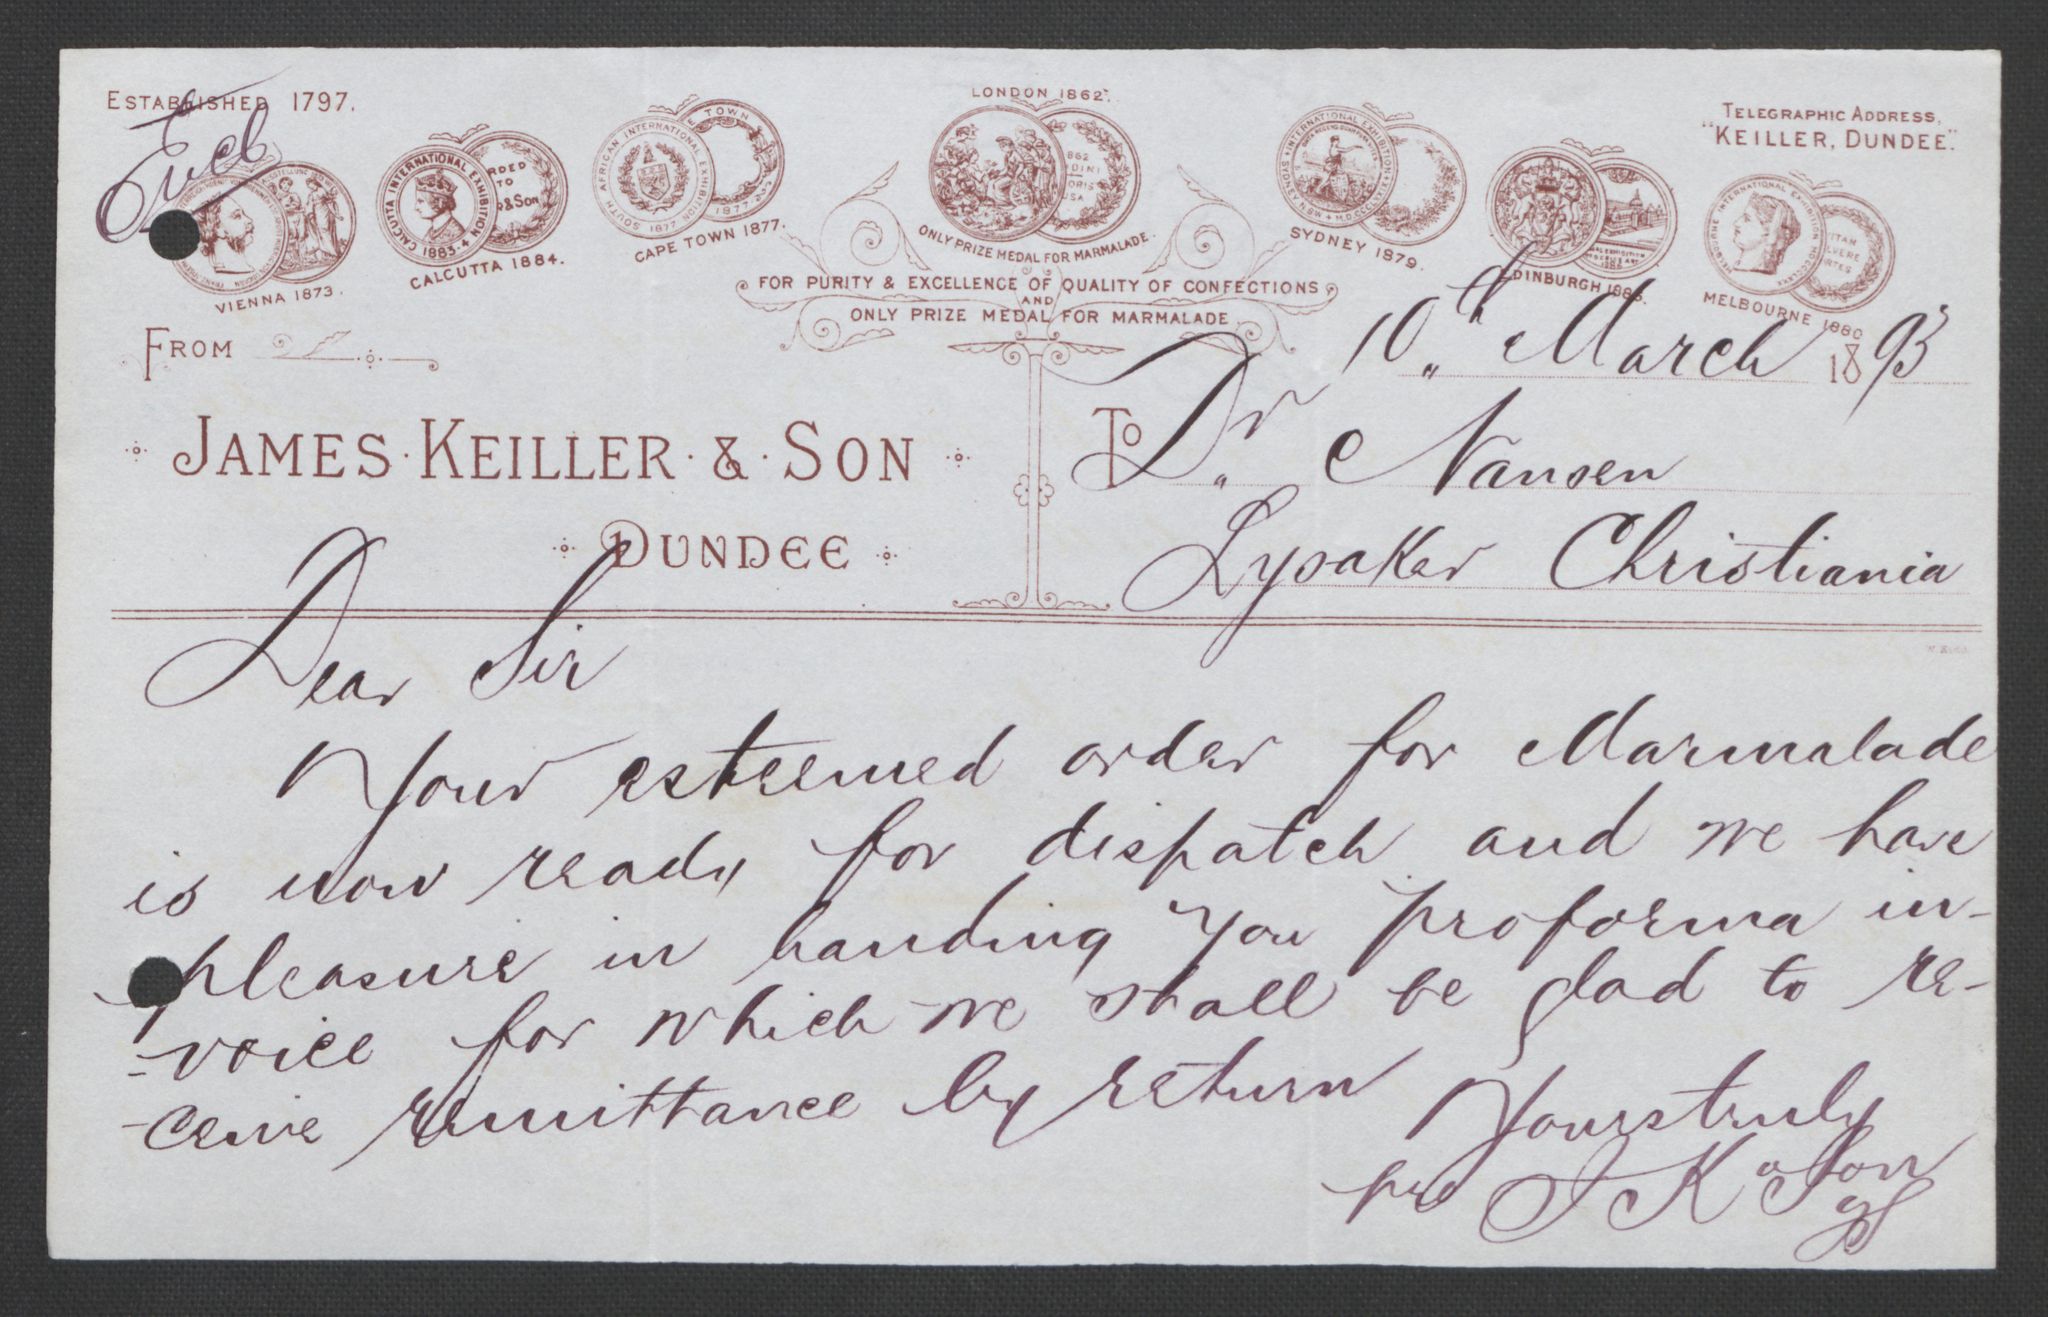 ESTABLISHED 1797.
Encl
LONDON 1862.
TELEGRAPHIC ADDRESS,
"KEILLER, DUNDEE."
VIENNA 1873.
CALCUTTA INTERNATIONAL EXHIBITION
1883-4
CALCUTTA 1884.
SOUTH AFRICAN INTERNATIONAL EXHIBITION
1877
TOWN
1877
CAPE TOWN 1877.
ONLY PRIZE MEDAL FOR MARMALADE.
SYDNEY 1879.
EDINBURGH 1886.
MELBOURNE INTERNATIONAL EXHIBITION MDCCCLXXX
MELBOURNE 1880
FOR PURITY & EXCELLENCE OF QUALITY OF CONFECTIONS
AND
ONLY PRIZE MEDAL FOR MARMALADE
10th March 1893
FROM
JAMES KEILLER & SON
DUNDEE
TO Dr Nansen
Lysaker Christiania
Dear Sir
Your esteemed order for Marmalade
is now ready for dispatch and we have
pleasure in handing you proforma in-
-voice for which we shall be glad to re-
-ceive remittance by return
Yours truly
pro J K & Son